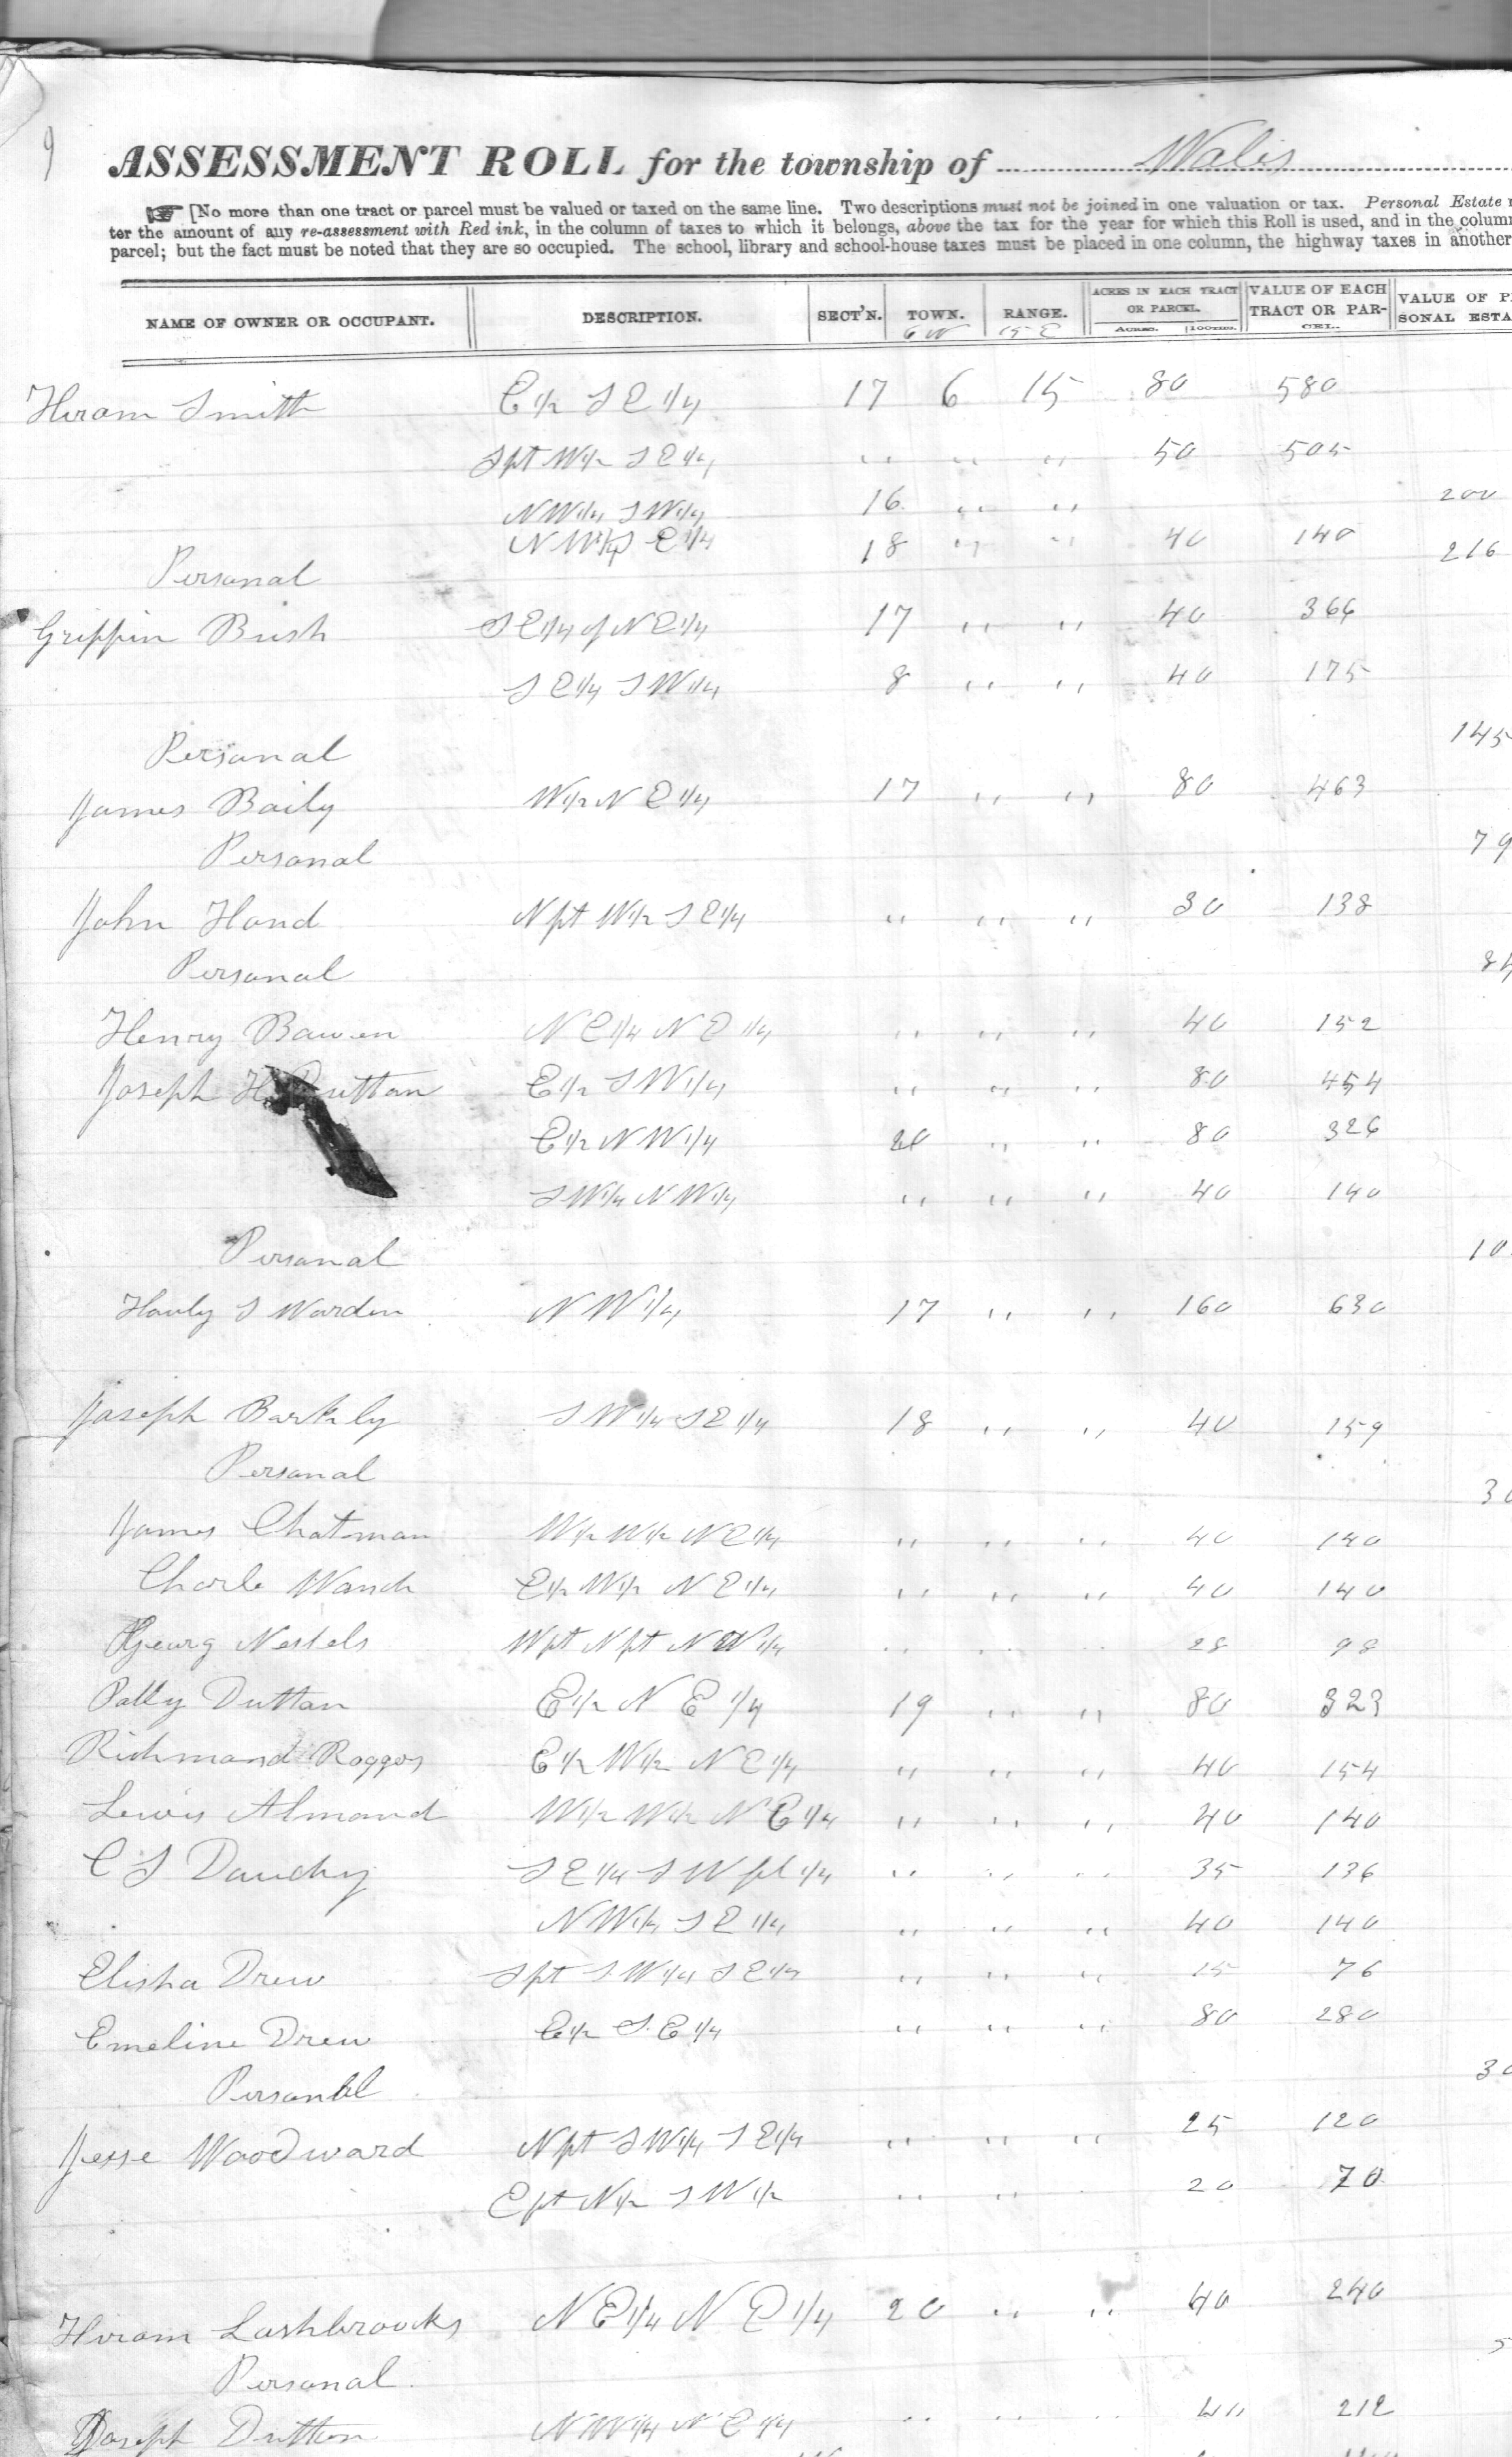 9
ASSESSMENT ROLL for the township of Wales
[No more than one tract or parcel must be valued or taxed on the same line. Two descriptions must not be joined in one valuation or tax. Personal Estate
ter the amount of any re-assessment with Red ink, in the column of taxes to which it belongs, above the tax for the year for which this Roll is used, and in the column
parcel; but the fact must be noted that they are so occupied. The school, library and school-house taxes must be placed in one column, the highway taxes in another
NAME OF OWNER OR OCCUPANT. DESCRIPTION. SECT'N. TOWN. RANGE. ACRES IN EACH TRACT OR PARCEL. ACRES. 100THS. VALUE OF EACH TRACT OR PARCEL. VALUE OF P SONAL ESTA
6 N 15 E
Hiram Smith E 1/2 S E 1/4 17 6 15 80 580
S pt W 1/2 S E 1/4 " " " 50 505
N W 1/4 S W 1/4 16 " " 200
N W 1/4 S E 1/4 18 " " 40 140
Personal 216
Griffin Bush S E 1/4 of N E 1/4 17 " " 40 366
S E 1/4 S W 1/4 8 " " 40 175
Personal 145
James Baily W 1/2 N E 1/4 17 " " 80 463
Personal 79
John Hand N pt W 1/2 S E 1/4 " " " 30 138
Personal
Henry Bowen N E 1/4 N E 1/4 " " " 40 152
Joseph H Dutton E 1/2 S W 1/4 " " " 80 454
E 1/2 N W 1/4 20 " " 80 326
S W 1/4 N W 1/4 " " " 40 140
Personal 10
S Warden N W 1/4 17 " " 160 630
Joseph Barkly S W 1/4 S E 1/4 18 " " 40 159
Personal 30
James Chatman W 1/2 W 1/2 N E 1/4 " " " 40 140
Charls Wanch E 1/2 W 1/2 N E 1/4 " " " 40 140
Georg Nestels W pt N pt N W 1/4 " " " 28 98
Polly Dutton E 1/2 N E 1/4 19 " " 80 323
Richmond Roggos E 1/2 W 1/2 N E 1/4 " " " 40 154
Lewis Almond W 1/2 W 1/2 N E 1/4 " " " 40 140
C S Dauchy S E 1/4 S W pl 1/4 " " " 35 136
N W 1/4 S E 1/4 " " " 40 140
Elisha Drew S pt S W 1/4 S E 1/4 " " " 15 76
Emeline Drew E 1/2 S. E 1/4 " " " 80 280
Personal 30
Jesse Woodward N pt S W 1/4 S E 1/4 " " " 25 120
E pt N 1/2 S W 1/2 " " " 20 70
Hiram Lashbroocks N E 1/4 N E 1/4 20 " " 40 240
Personal 5
Joseph Dutton N W 1/4 N E 1/4 " " " 40 212